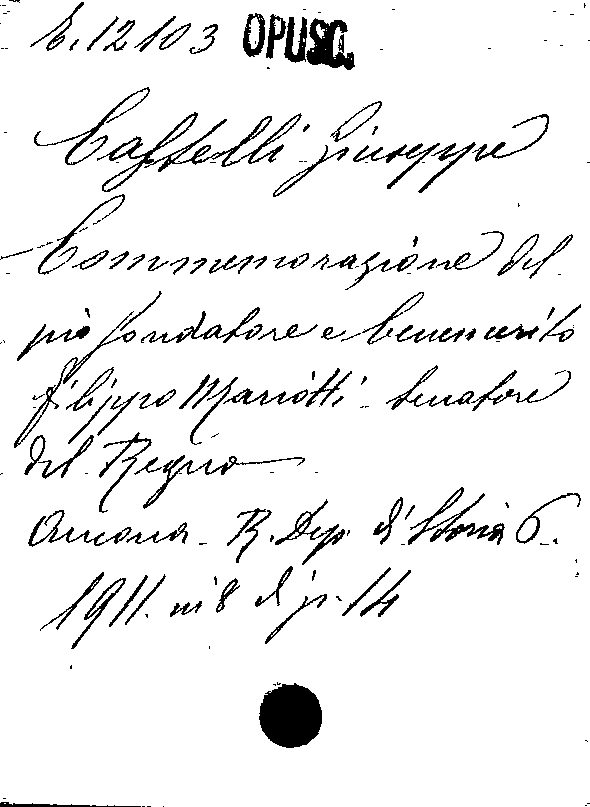 E. 12103 OPUSC.
Castelli Giuseppe
Commemorazione del
pio fondatore e benemerito
Filippo Mariotti - Senatore
del Regno
Ancona - R. Dep. di Storia P.
1911. in 8 di p. 14